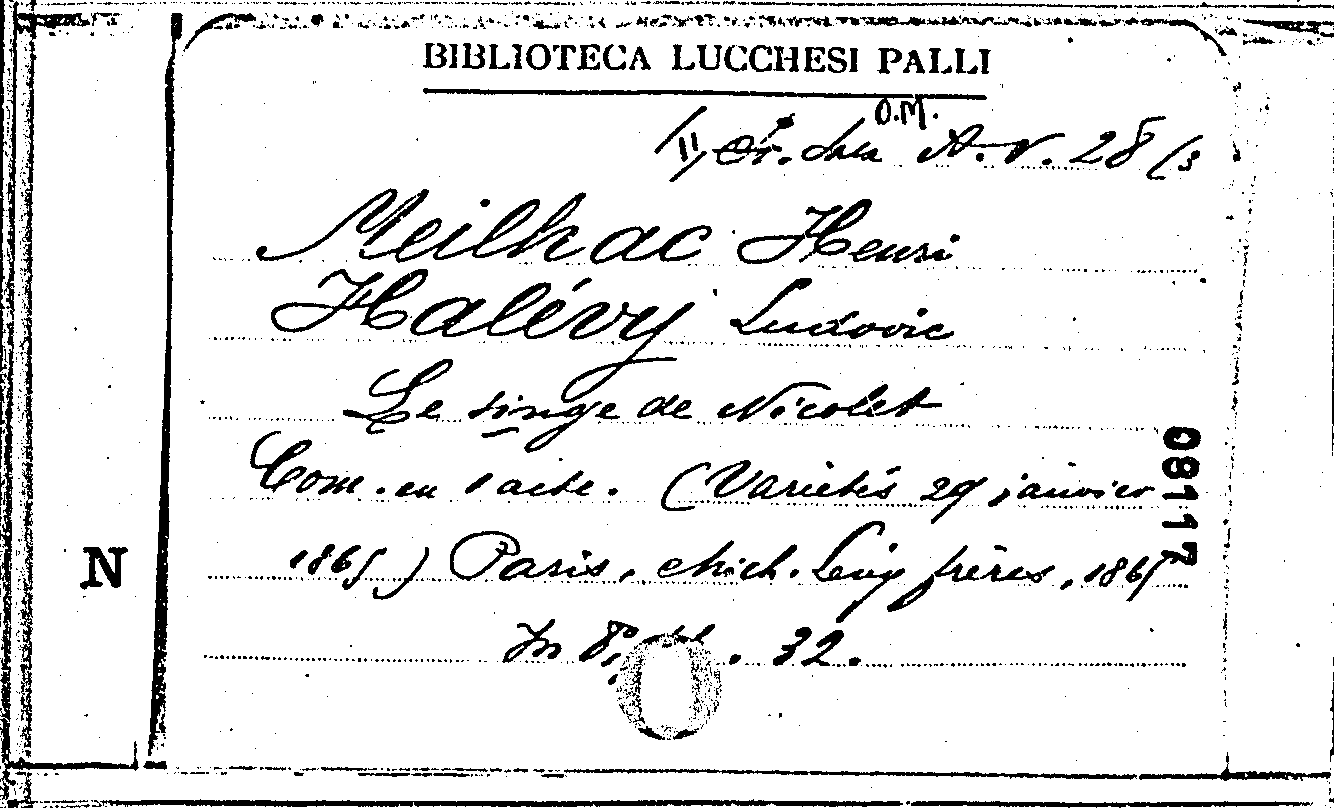 BIBLIOTECA LUCCHESI PALLI
O.M.
A. V. 28 (3
Meilhac Henri
Halévy Ludovic
Le singe de Nicolet
Com. en 1 acte. (Variétés 29 janvier
1865) Paris, Mich. Lévy frères, 1865
In 8, 32.
08117
N